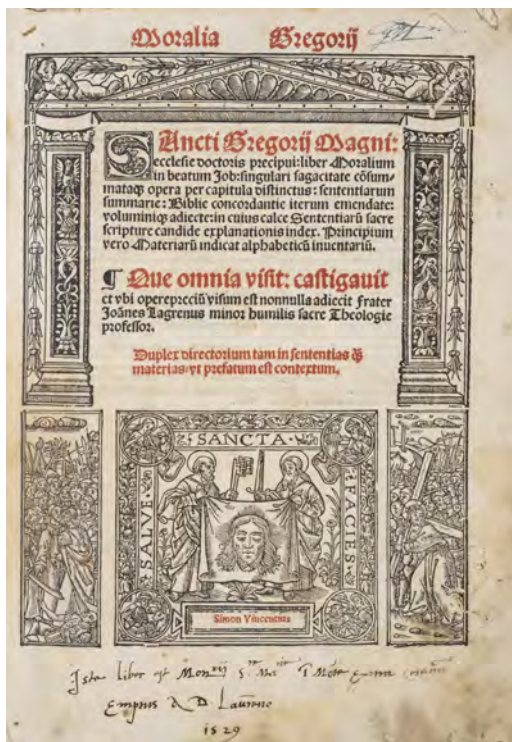 Moralia Gregorij
SAncti Gregorij Magni:
ecclesie doctoris precipui: liber Moralium
in beatum Job: singulari sagacitate cōsum-
mataqꝫ opera per capitula distinctus: sententiarum
summarie: Biblie concordantie iterum emendate:
voluminiqꝫ adiecte: in cuius calce Sententiarū sacre
scripture candide explanationis index. Principium
vero Materiarū indicat alphabeticū inuentariū.
¶ Que omnia visit: castigauit
et vbi operepreciū visum est nonnulla adiecit frater
Joānes Lagrenus minor humilis sacre Theologie
professor.
Duplex directorium tam in sententias qꝫ
materias: vt prefatum est contextum.
SANCTA
SALVE
FACIES
Simon Vincentius
Iste liber est Mon
Emptus A D
1529